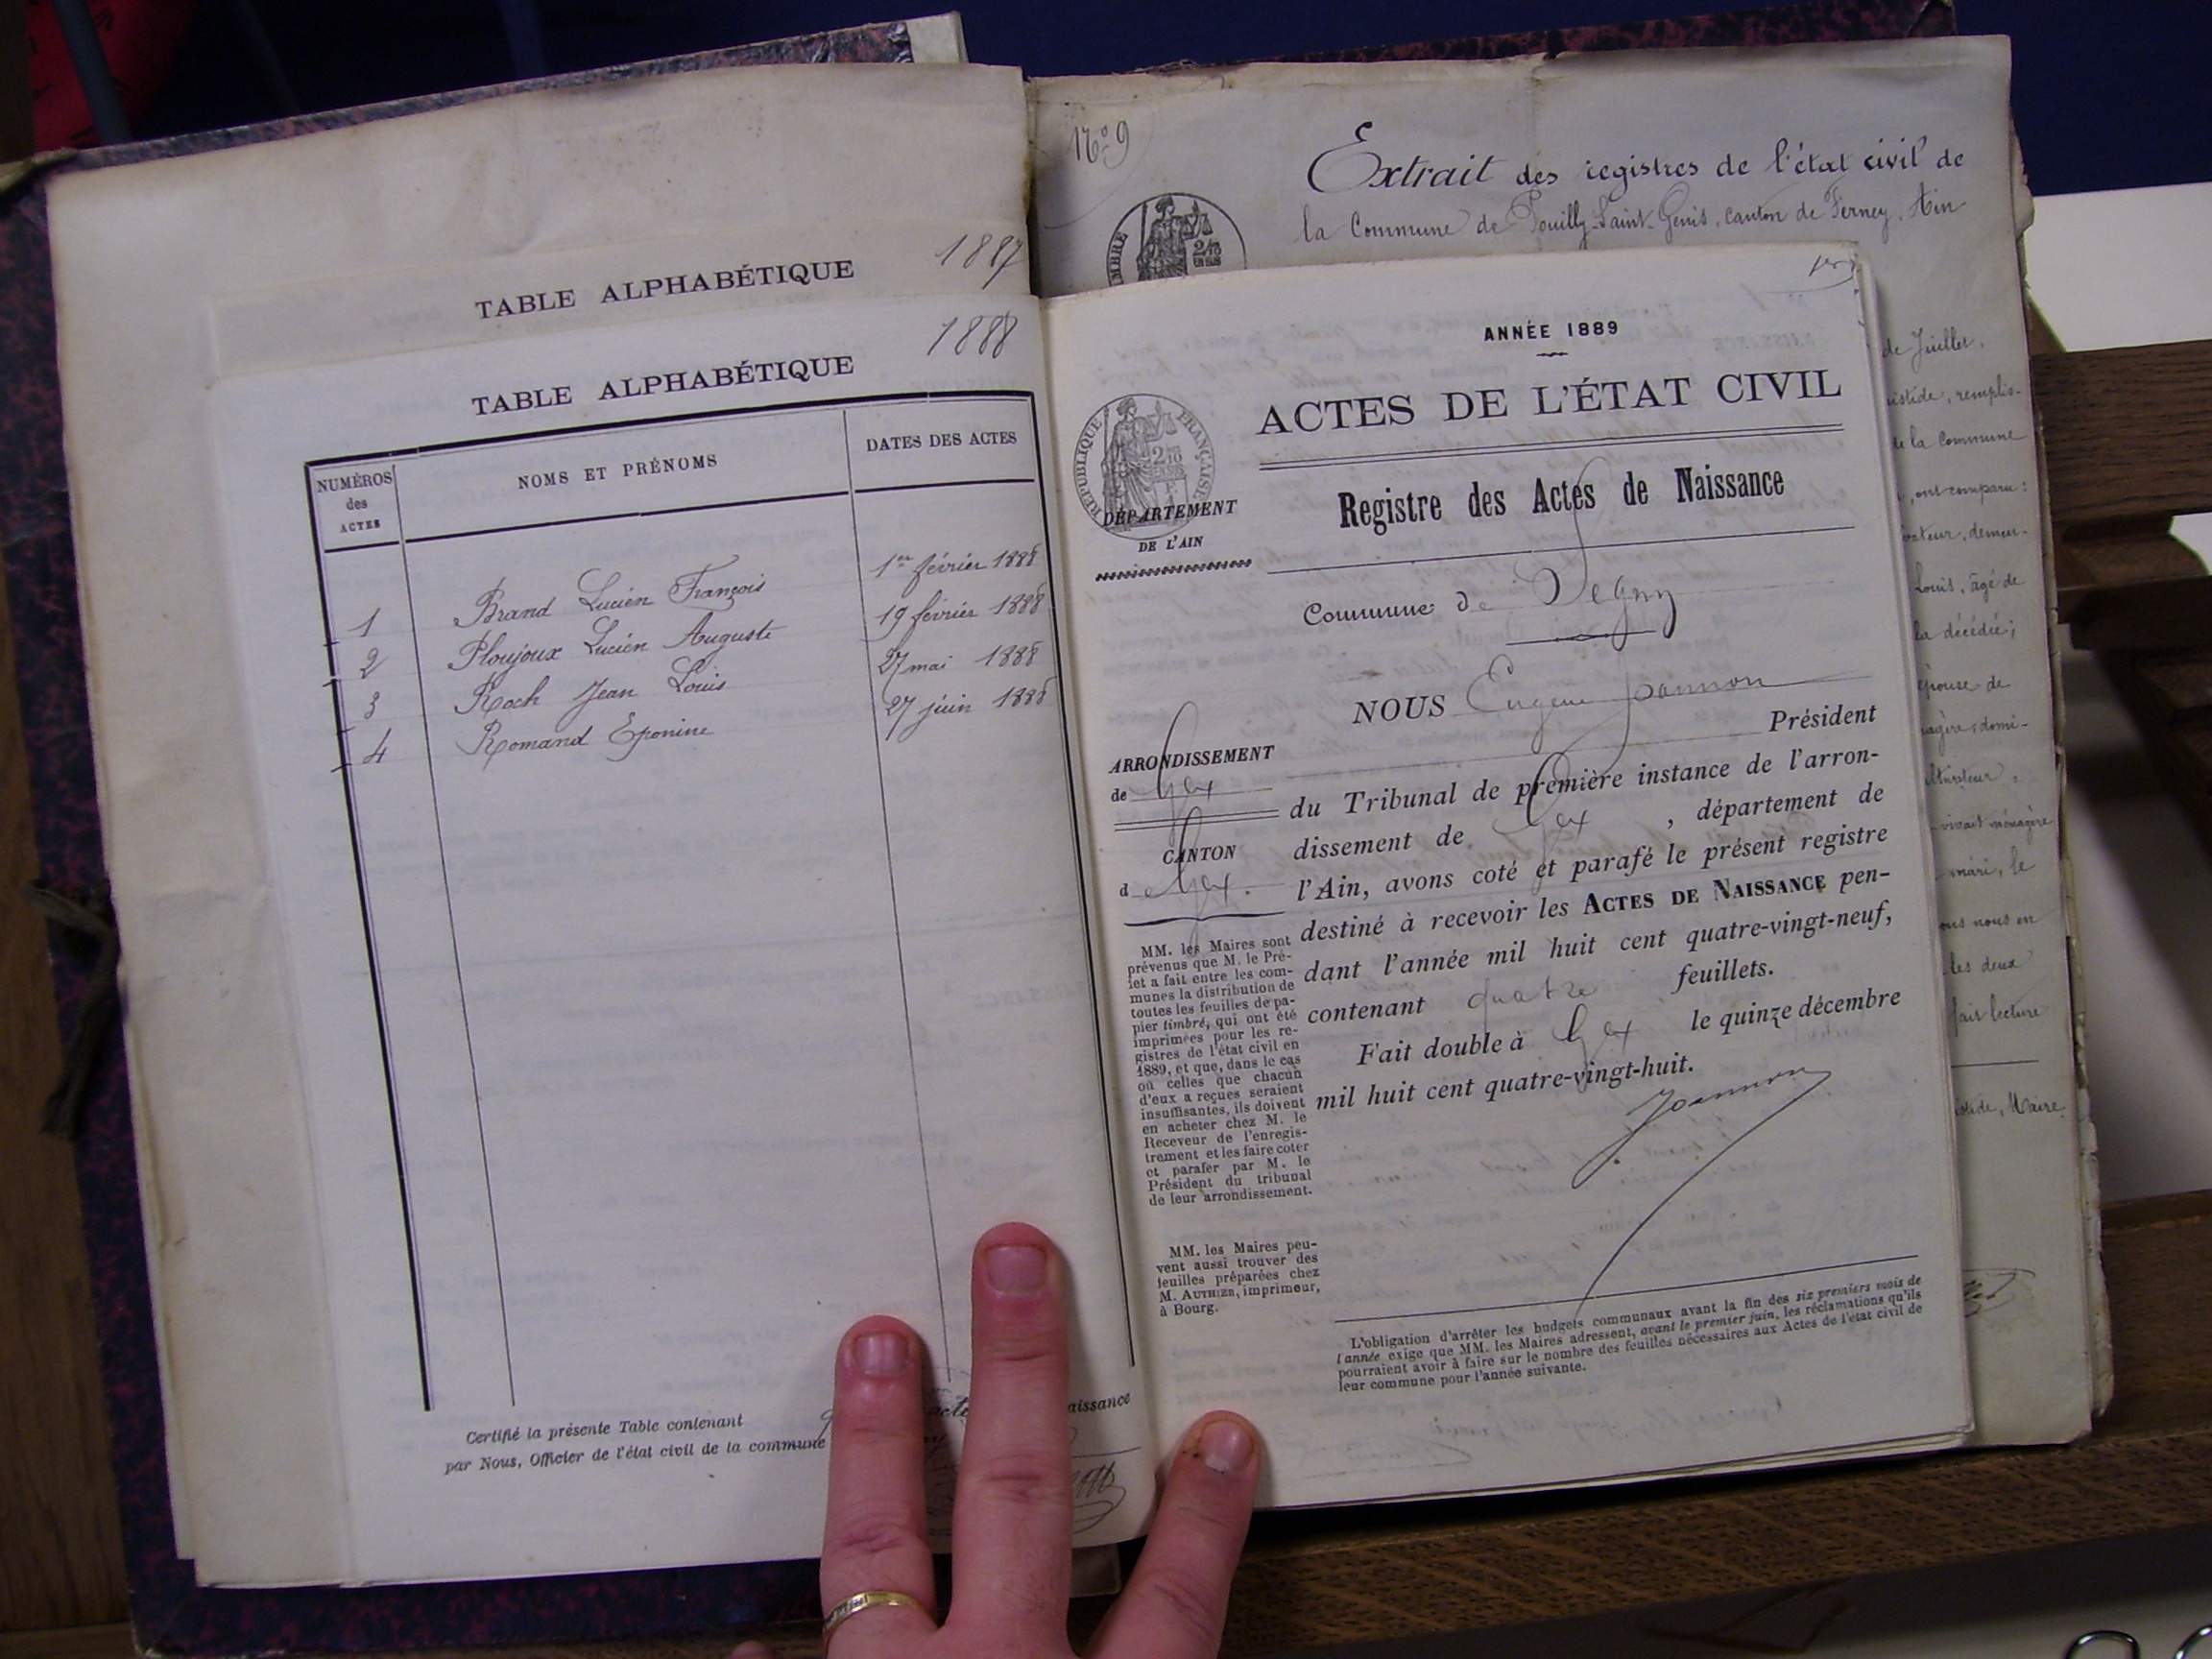 1887
TABLE ALPHABÉTIQUE
1888
TABLE ALPHABÉTIQUE
NUMÉROS
des
ACTES
NOMS ET PRÉNOMS
DATES DES ACTES
1 Brand Lucien François 1er février 1888
2 Ploujoux Lucien Auguste 19 février 1888
3 Roch Jean Louis 27 mai 1888
4 Romand Eponine 27 juin 1888
Certifié la présente Table contenant
par Nous, Officier de l'état civil de la commune
No 9
Extrait des registres de l'état civil de
la Commune de Pouilly-Saint-Genis, canton de Ferney, Ain
ANNÉE 1889
ACTES DE L'ÉTAT CIVIL
RÉPUBLIQUE FRANÇAISE
DÉPARTEMENT
DE L'AIN
Registre des Actes de Naissance
Commune de Segny
NOUS Eugène Joannon
Président
du Tribunal de première instance de l'arron-
dissement de Gex, département de
l'Ain, avons coté et parafé le présent registre
destiné à recevoir les ACTES DE NAISSANCE pen-
dant l'année mil huit cent quatre-vingt-neuf,
contenant quatre feuillets.
Fait double à Gex le quinze décembre
mil huit cent quatre-vingt-huit.
Joannon
ARRONDISSEMENT
de Gex
CANTON
d e Gex.
MM. les Maires sont
prévenus que M. le Pré-
fet a fait entre les com-
munes la distribution de
toutes les feuilles de pa-
pier timbré, qui ont été
imprimées pour les re-
gistres de l'état civil en
1889, et que, dans le cas
où celles que chacun
d'eux a reçues seraient
insuffisantes, ils doivent
en acheter chez M. le
Receveur de l'enregis-
trement et les faire coter
et parafer par M. le
Président du tribunal
de leur arrondissement.
MM. les Maires peu-
vent aussi trouver des
feuilles préparées chez
M. AUTHIER, imprimeur,
à Bourg.
L'obligation d'arrêter les budgets communaux avant la fin des six premiers mois de
l'année exige que MM. les Maires adressent, avant le premier juin, les réclamations qu'ils
pourraient avoir à faire sur le nombre des feuilles nécessaires aux Actes de l'état civil de
leur commune pour l'année suivante.
de Juillet,
remplis-
de la Commune
ont comparu:
demeu-
Louis, âgé de
la décédée;
épouse de
domi-
vivait ménagère
mari, le
nous en
les deux
fait lecture
Maire